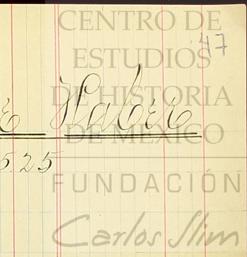 CENTRO DE
ESTUDIOS
47
DE HISTORIA
Haber
DE MÉXICO
525
FUNDACIÓN
Carlos Slim